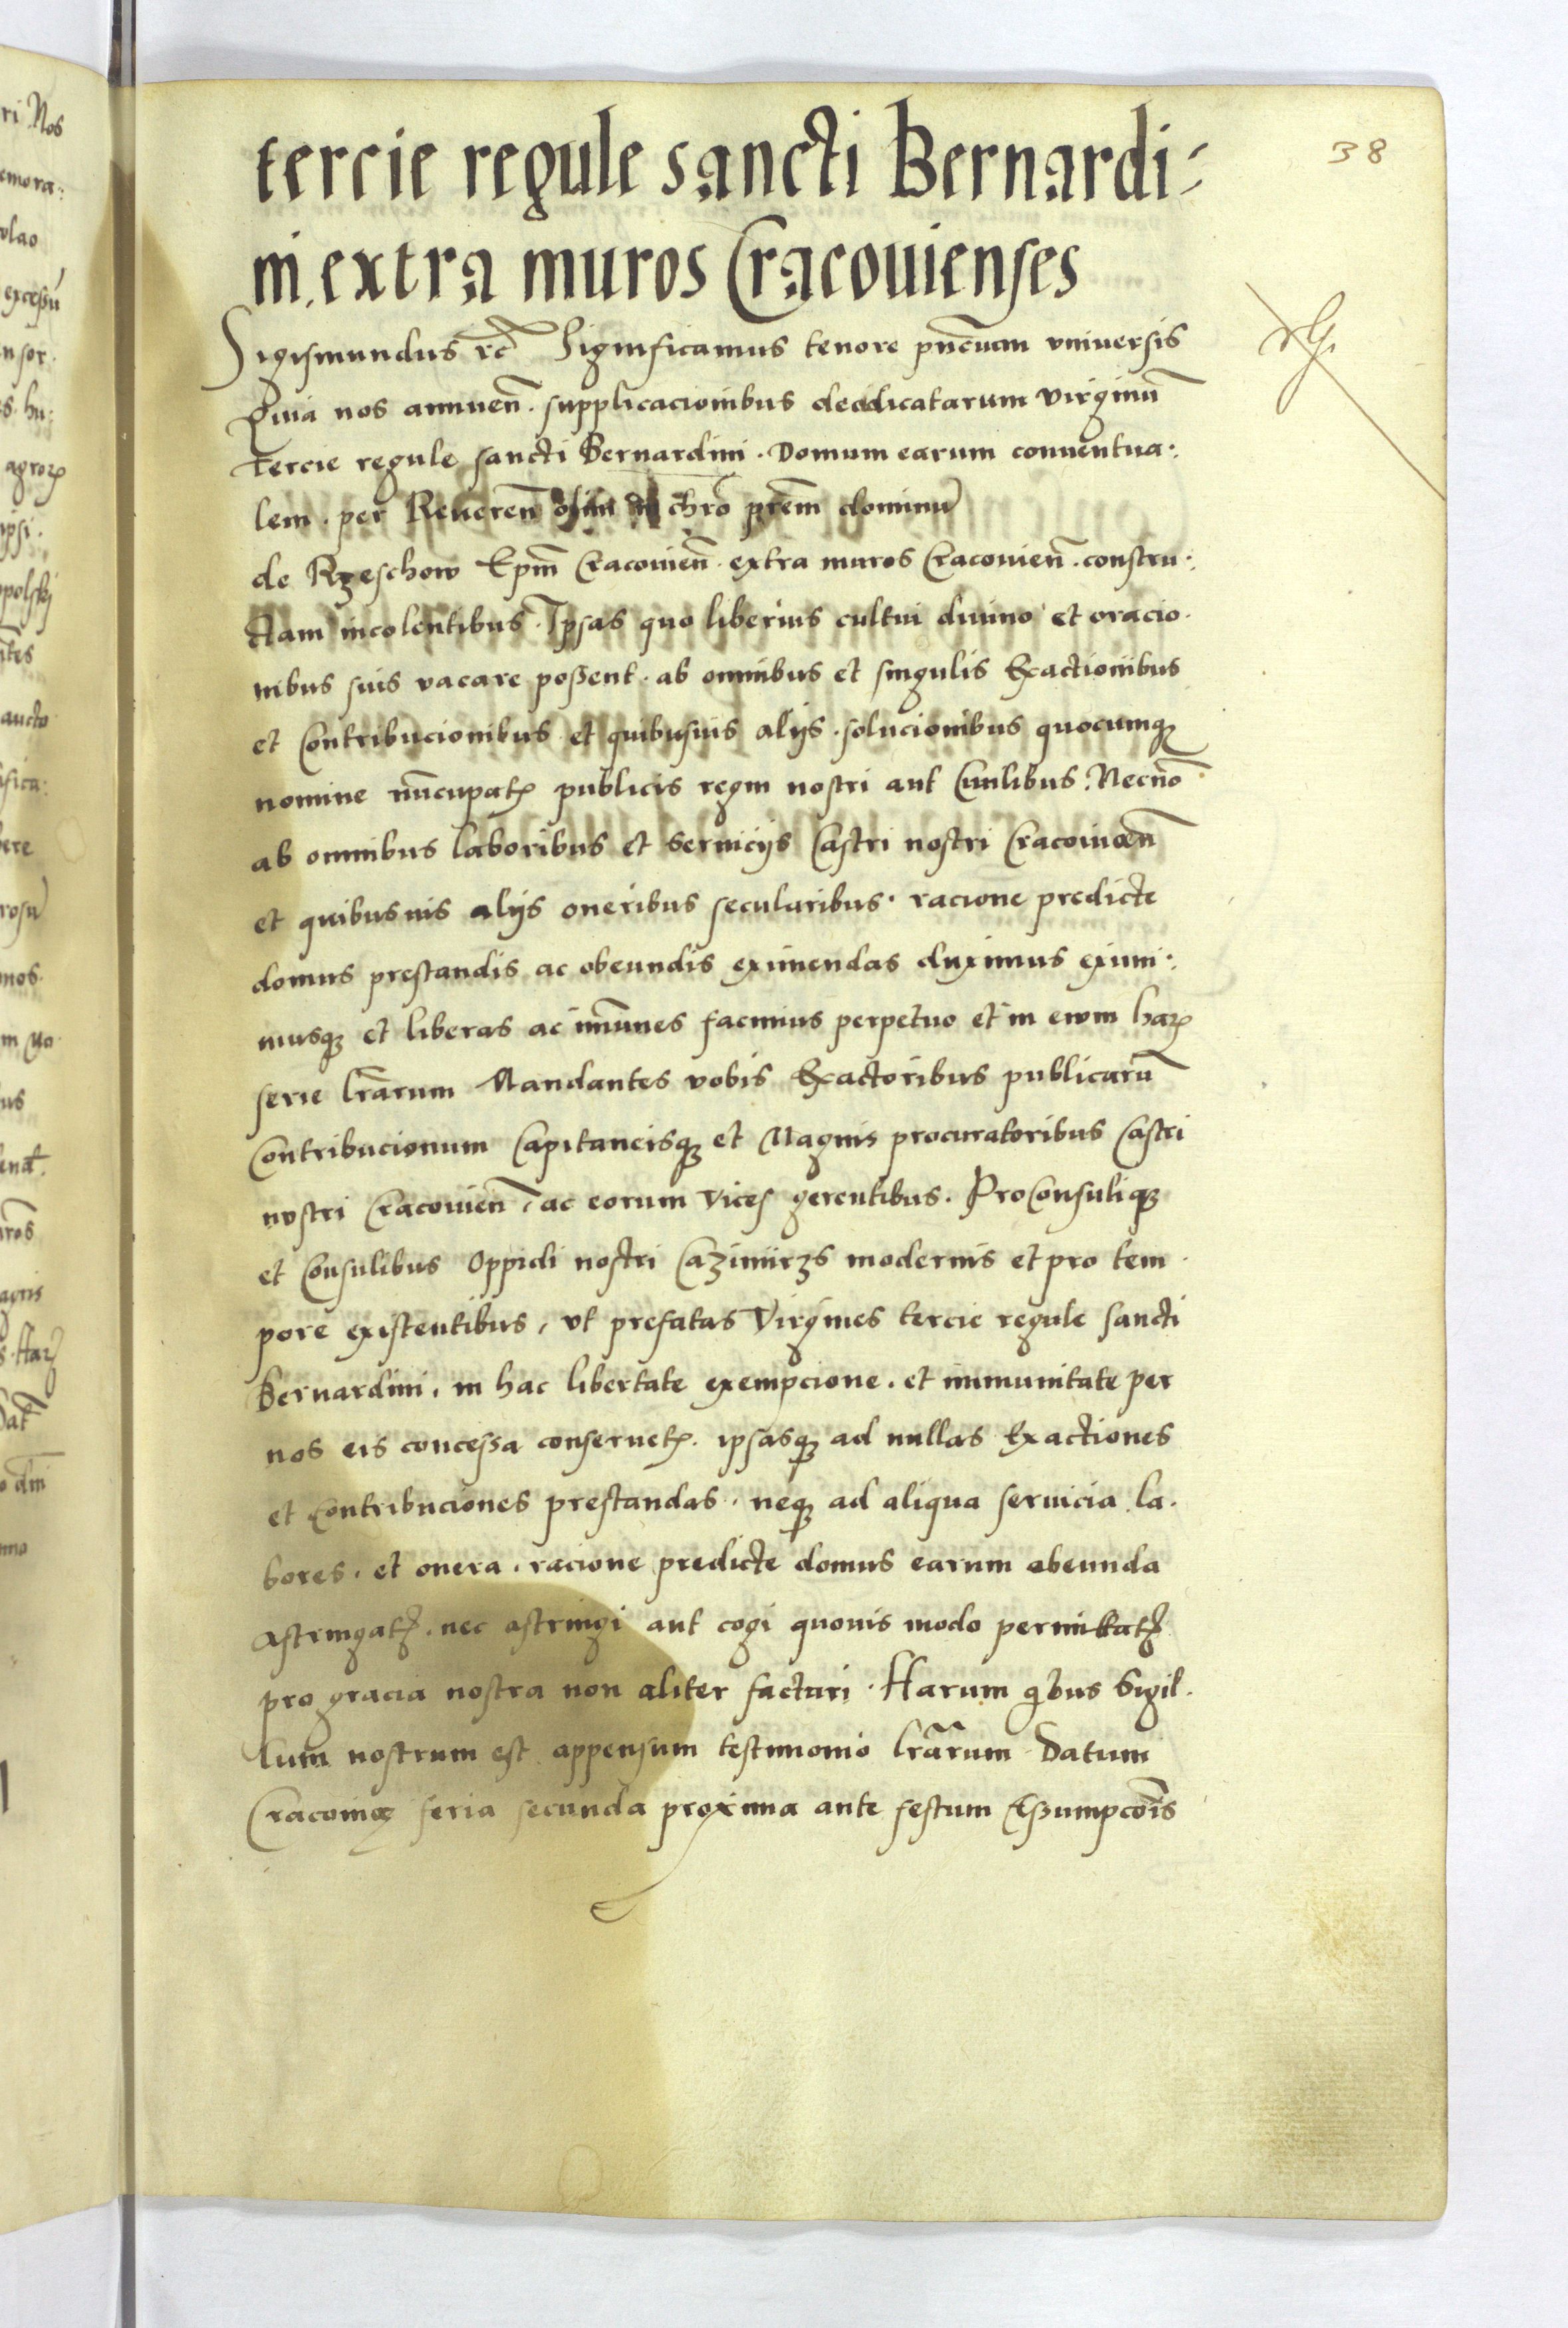 38
tercie regule sancti Bernardi-
ni extra muros Cracouienses
Sigismundus rc̃ Significamus tenore pn̄cium vniuersis
Quia nos annuen̄. supplicacionibus dedicatarum virginū
tercie regule sancti Bernardini. Domum earum conuentua:
lem. per Reueren̄ olim in chr̄o pr̄em dominū
de Rzeschow Ep̄m Cracouien̄. extra muros Cracouien̄. constru:
ctam incolentibus. Ipsas quo liberius cultui diuino et oracio.
nibus suis vacare possent. ab omnibus et singulis Exactionibus
et Contribucionibus et quibusuis alijs. solucionibus quocumqꝫ
nomine nūcupatꝫ publicis regni nostri aut Ciuilibus. Necnō
ab omnibus laboribus et seruicijs Castri nostri Cracouien̄
et quibusuis alijs oneribus secularibus. racione predicte
domus prestandis ac obeundis eximendas duximus eximi:
musqꝫ et liberas ac im̄unes facimus perpetuo et in ewm harꝫ
serie lr̄arum Mandantes vobis Exactoribus publicarū
Contribucionum Capitaneisqꝫ et Magnis procuratoribus Castri
nostri Cracouien̄, ac eorum vices gerentibus. ProConsuliqꝫ
et Consulibus Oppidi nostri Cazimirzs modernis et pro tem.
pore existentibus, vt prefatas Virgines tercie regule sancti
Bernardini, in hac libertate exempcione. et immunitate per
nos eis concessa conseruetꝫ. ipsasqꝫ ad nullas Exactiones
et Contribuciones prestandas. neqꝫ ad aliqua seruicia la.
bores. et onera. racione predicte domus earum obeunda
astringatꝫ. nec astringi aut cogi quouis modo permittatꝫ
pro gracia nostra non aliter facturi. Harum qͥbus Sigil.
lum nostrum est appensum testimonio lr̄arum Datum
Cracouie feria secunda proxima ante festum Assumpcōis